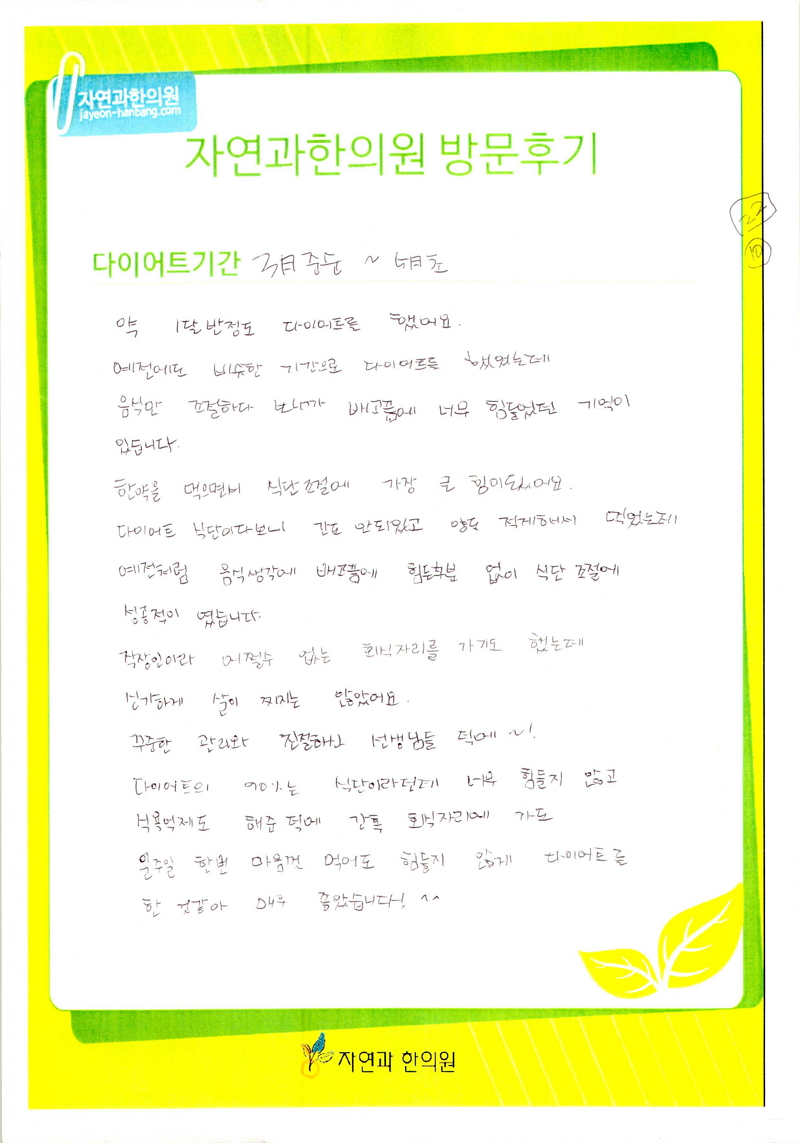 자연과한의원
jayeon-hanbang.com
자연과한의원 방문후기
22
10
다이어트기간 3月중순 ~ 5月초
약 1달반정도 다이어트를 했어요.
예전에도 비슷한 기간으로 다이어트를 했었는데
음식만 조절하다 보니까 배고픔에 너무 힘들었던 기억이
있습니다.
한약을 먹으면서 식단조절에 가장 큰 힘이되었어요.
다이어트 식단이다보니 간도 안되있고 양도 적게해서 먹었는데
예전처럼 음식생각에 배고픔에 힘든부분 없이 식단 조절에
성공적이 였습니다.
직장인이라 어쩔수 없는 회식자리를 가기도 했는데
신기하게 살이 찌지는 않았어요.
꾸준한 관리와 친절하신 선생님들 덕에~!
다이어트의 90%는 식단이라던데 너무 힘들지 않고
식욕억제도 해준 덕에 간혹 회식자리에 가도
일주일 한번 마음껏 먹어도 힘들지 않게 다이어트를
한 것같아 매우 좋았습니다! ^^
자연과 한의원